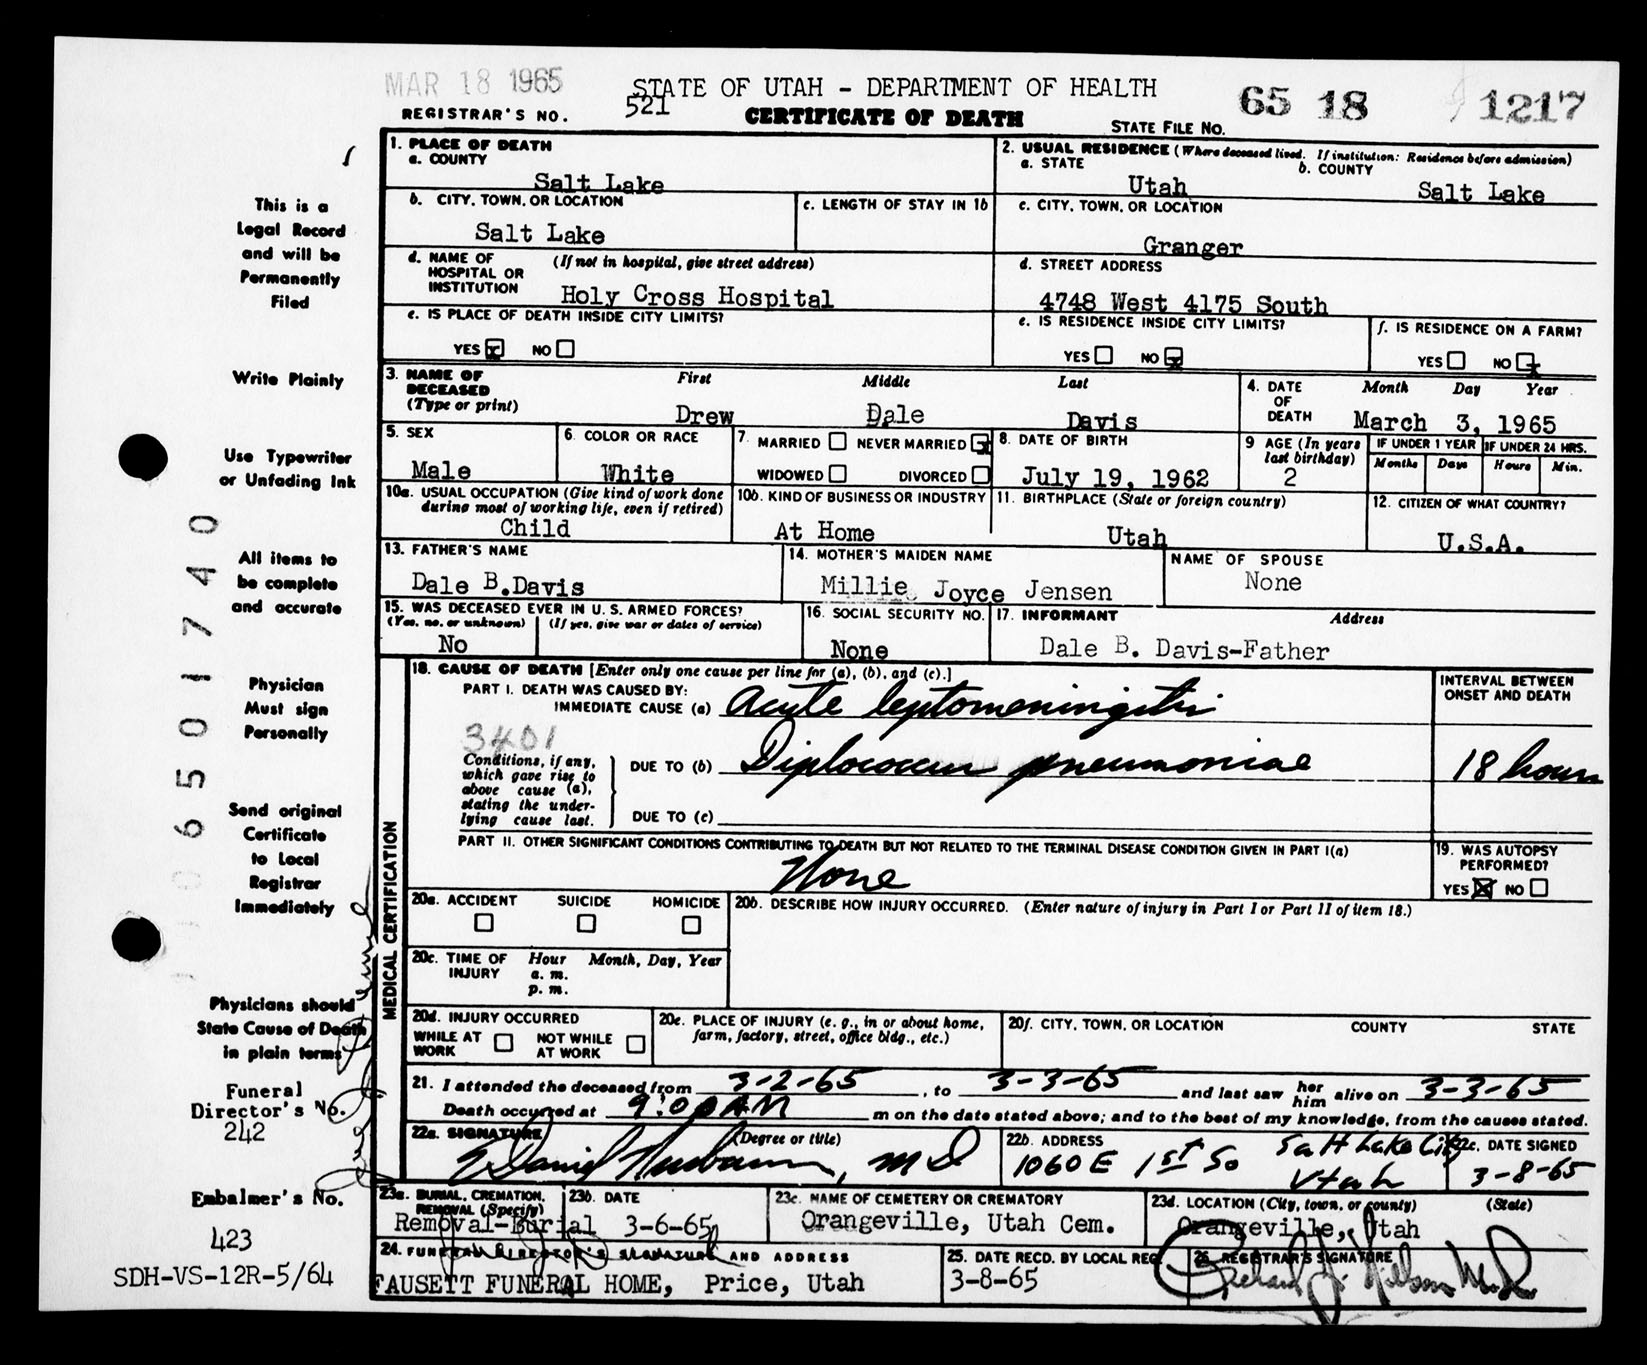 MAR 18 1965
STATE OF UTAH - DEPARTMENT OF HEALTH
65 18 1217
REGISTRAR'S NO. 521
CERTIFICATE OF DEATH
STATE FILE NO.
This is a
Legal Record
and will be
Permanently
Filed
Write Plainly
Use Typewriter
or Unfading Ink
All items to
be complete
and accurate
Physician
Must sign
Personally
Send original
Certificate
to Local
Registrar
Immediately
Physicians should
State Cause of Death
in plain terms
Funeral
Director's No.
242
Embalmer's No.
423
SDH-VS-12R-5/64
0650 1740
1. PLACE OF DEATH
a. COUNTY
Salt Lake
2. USUAL RESIDENCE (Where deceased lived. If institution: Residence before admission)
a. STATE
Utah
b. COUNTY
Salt Lake
b. CITY, TOWN, OR LOCATION
Salt Lake
c. LENGTH OF STAY IN 1b
c. CITY, TOWN, OR LOCATION
Granger
d. NAME OF HOSPITAL OR INSTITUTION
(If not in hospital, give street address)
Holy Cross Hospital
d. STREET ADDRESS
4748 West 4175 South
e. IS PLACE OF DEATH INSIDE CITY LIMITS?
YES x NO
e. IS RESIDENCE INSIDE CITY LIMITS?
YES NO x
f. IS RESIDENCE ON A FARM?
YES NO x
3. NAME OF DECEASED
(Type or print)
First Middle Last
Drew Dale Davis
4. DATE OF DEATH
Month Day Year
March 3, 1965
5. SEX
Male
6. COLOR OR RACE
White
7. MARRIED NEVER MARRIED x
WIDOWED DIVORCED
8. DATE OF BIRTH
July 19, 1962
9 AGE (In years last birthday)
2
IF UNDER 1 YEAR
Months Days
IF UNDER 24 HRS.
Hours Min.
10a. USUAL OCCUPATION (Give kind of work done during most of working life, even if retired)
Child
10b. KIND OF BUSINESS OR INDUSTRY
At Home
11. BIRTHPLACE (State or foreign country)
Utah
12. CITIZEN OF WHAT COUNTRY?
U.S.A.
13. FATHER'S NAME
Dale B. Davis
14. MOTHER'S MAIDEN NAME
Millie Joyce Jensen
NAME OF SPOUSE
None
15. WAS DECEASED EVER IN U.S. ARMED FORCES?
(Yes, no, or unknown) (If yes, give war or dates of service)
No
16. SOCIAL SECURITY NO.
None
17. INFORMANT Address
Dale B. Davis-Father
MEDICAL CERTIFICATION
18. CAUSE OF DEATH [Enter only one cause per line for (a), (b), and (c).]
PART I. DEATH WAS CAUSED BY:
IMMEDIATE CAUSE (a) Acute leptomeningitis
3401
Conditions, if any, which gave rise to above cause (a), stating the underlying cause last.
DUE TO (b) Diplococcus pneumoniae
DUE TO (c)
INTERVAL BETWEEN ONSET AND DEATH
18 hours
PART II. OTHER SIGNIFICANT CONDITIONS CONTRIBUTING TO DEATH BUT NOT RELATED TO THE TERMINAL DISEASE CONDITION GIVEN IN PART I(a)
None
19. WAS AUTOPSY PERFORMED?
YES X NO
20a. ACCIDENT SUICIDE HOMICIDE
20b. DESCRIBE HOW INJURY OCCURRED. (Enter nature of injury in Part I or Part II of item 18.)
20c. TIME OF INJURY
Hour Month, Day, Year
a. m.
p. m.
20d. INJURY OCCURRED
WHILE AT WORK NOT WHILE AT WORK
20e. PLACE OF INJURY (e. g., in or about home, farm, factory, street, office bldg., etc.)
20f. CITY, TOWN, OR LOCATION COUNTY STATE
21. I attended the deceased from 3-2-65, to 3-3-65 and last saw her him alive on 3-3-65
Death occurred at 9:00 AM m on the date stated above; and to the best of my knowledge, from the causes stated.
22a. SIGNATURE (Degree or title)
Daniel , MD
22b. ADDRESS
1060 E 1st So Salt Lake City
Utah
22c. DATE SIGNED
3-8-65
23a. BURIAL, CREMATION, REMOVAL (Specify)
Removal-Burial
23b. DATE
3-6-65
23c. NAME OF CEMETERY OR CREMATORY
Orangeville, Utah Cem.
23d. LOCATION (City, town, or county) (State)
Orangeville, Utah
24. FUNERAL DIRECTOR'S SIGNATURE AND ADDRESS
FAUSETT FUNERAL HOME, Price, Utah
25. DATE RECD. BY LOCAL REG.
3-8-65
26. REGISTRAR'S SIGNATURE